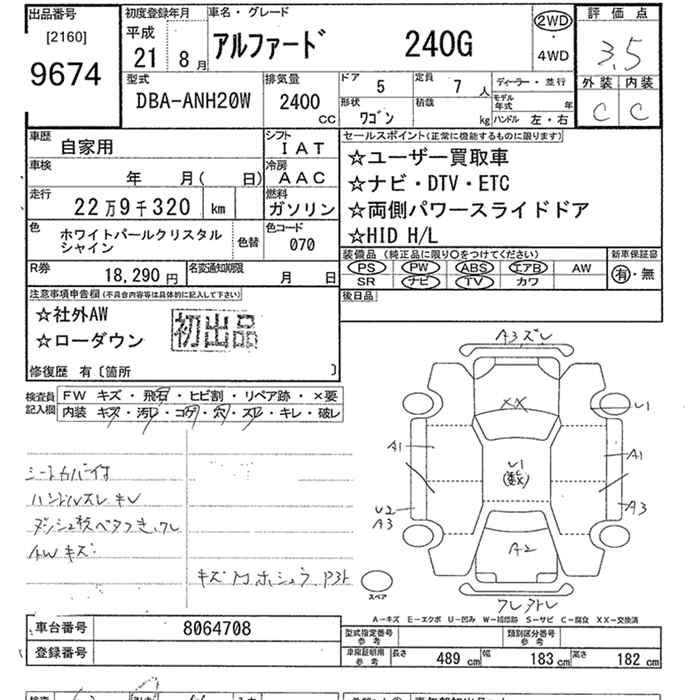 出品番号
[2160]
9674
初度登録年月
平成
21 8月
車名・グレード
アルファード 240G
2WD
・
4WD
評価点
3.5
外装 内装
C C
型式
DBA-ANH20W
排気量
2400
cc
ドア 5
定員 7 人
形状 ワゴン
積載 kg
ディーラー・並行
モデル年式 年
ハンドル 左・右
車歴
自家用
シフト
IAT
車検
年 月( 日)
冷房
AAC
走行
22万9千320 km
燃料
ガソリン
色
ホワイトパールクリスタル
シャイン
色替
色コード
070
R券
18,290 円
名変通知期限
月 日
セールスポイント(正常に機能するものに限ります)
☆ユーザー買取車
☆ナビ・DTV・ETC
☆両側パワースライドドア
☆HID H/L
装備品(純正品に限り〇をつけてください)
PS PW ABS エアB AW
SR ナビ TV カワ
新車保証書
有・無
後日品
注意事項申告欄(不具合内容等は具体的に記入して下さい)
☆社外AW
☆ローダウン
初出品
修復歴 有〔箇所 〕
検査員
記入欄
FW キズ・飛石・ヒビ割・リペア跡・×要
内装 キズ・汚レ・コゲ・穴・スレ・キレ・破レ
シートカバー付
ハンドルスレ キレ
AWキズ
A3,ズレ
XX
U1
A1
U1
(数)
A1
U2
A3
A3
A2
スペア
A-キズ E-エクボ U-凹み W-補修跡 S-サビ C-腐食 XX-交換済
車台番号 8064708
登録番号
型式指定番号
参考
類別区分番号
参考
車庫証明用
参考
長さ 489 cm
幅 183 cm
高さ 182 cm